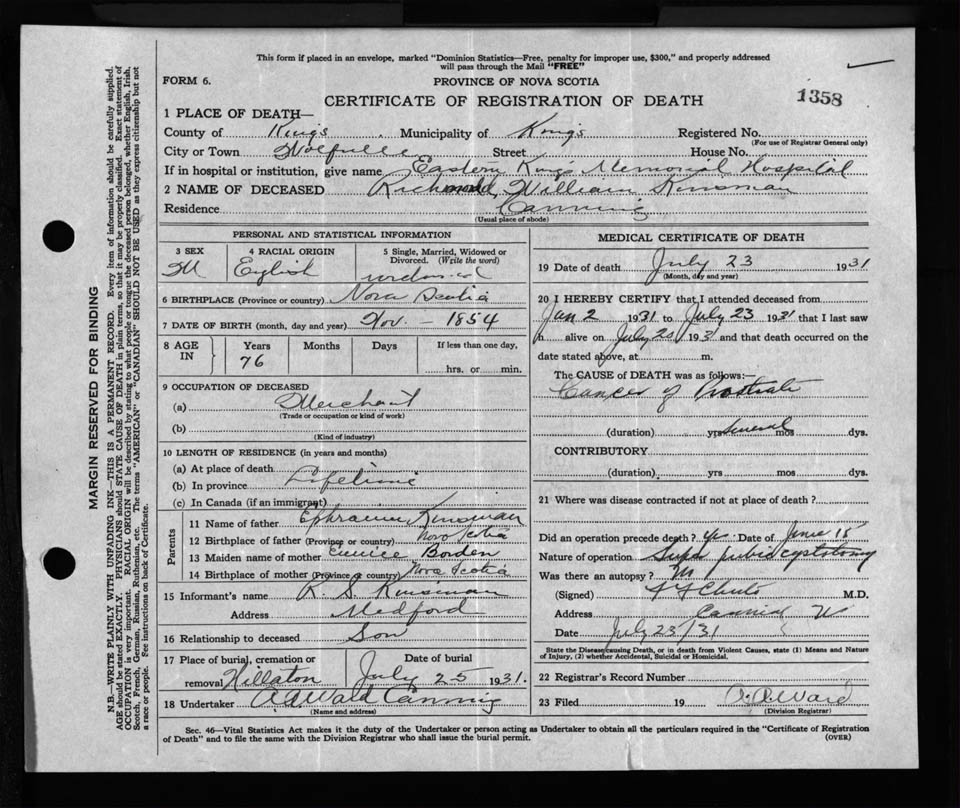 This form if placed in an envelope, marked "Dominion Statistics—Free, penalty for improper use, $300," and properly addressed
will pass through the Mail "FREE"
FORM 6.
PROVINCE OF NOVA SCOTIA
CERTIFICATE OF REGISTRATION OF DEATH
1358
1 PLACE OF DEATH—
County of Kings Municipality of Kings Registered No.
(For use of Registrar General only)
City or Town Wolfville Street House No.
If in hospital or institution, give name Eastern Kings Memorial Hospital
2 NAME OF DECEASED Richmond, William Kinsman
Residence Canning
(Usual place of abode)
PERSONAL AND STATISTICAL INFORMATION
3 SEX M
4 RACIAL ORIGIN English
5 Single, Married, Widowed or Divorced. (Write the word) widowed
6 BIRTHPLACE (Province or country) Nova Scotia
7 DATE OF BIRTH (month, day and year) Nov. — 1854
8 AGE IN Years Months Days If less than one day,
76 hrs. or min.
9 OCCUPATION OF DECEASED
(a) Merchant
(Trade or occupation or kind of work)
(b)
(Kind of industry)
10 LENGTH OF RESIDENCE (in years and months)
(a) At place of death
(b) In province Lifetime
(c) In Canada (if an immigrant)
Parents
11 Name of father Ephraim Kinsman
12 Birthplace of father (Province or country) Nova Scotia
13 Maiden name of mother Eunice Borden
14 Birthplace of mother (Province or country) Nova Scotia
15 Informant's name R. S. Kinsman
Address Medford
16 Relationship to deceased Son
17 Place of burial, cremation or removal Hillaton
Date of burial July 25 1931.
18 Undertaker Canning
(Name and address)
MEDICAL CERTIFICATE OF DEATH
19 Date of death July 23 1931
(Month, day and year)
20 I HEREBY CERTIFY that I attended deceased from
Jan 2 1931 to July 23 1931 that I last saw
h alive on July 1931 and that death occurred on
date stated above, at m.
The CAUSE of DEATH was as follows:—
Cancer of Prostrate
(duration) yrs several mos dys.
CONTRIBUTORY
(duration) yrs mos dys.
21 Where was disease contracted if not at place of death?
Did an operation precede death? yes Date of June 15
Nature of operation Supra pubic cystotomy
Was there an autopsy? no
(Signed) Chute M.D.
Address Canning
Date July 23/31
State the Disease causing Death, or in death from Violent Causes, state (1) Means and Nature
of Injury, (2) whether Accidental, Suicidal or Homicidal.
22 Registrar's Record Number
23 Filed 19 Ward
(Division Registrar)
Sec. 46—Vital Statistics Act makes it the duty of the Undertaker or person acting as Undertaker to obtain all the particulars required in the "Certificate of Registration
of Death" and to file the same with the Division Registrar who shall issue the burial permit. (OVER)
MARGIN RESERVED FOR BINDING
N.B.—WRITE PLAINLY WITH UNFADING INK—THIS IS A PERMANENT RECORD. Every item of information should be carefully supplied.
AGE should be stated EXACTLY. PHYSICIANS should STATE CAUSE OF DEATH in plain terms, so that it may be properly classified. Exact statement of
OCCUPATION is very important. RACIAL ORIGIN will be described by stating to what people or tongue the deceased person belonged, whether English, Irish,
Scotch, French, German, Russian, Ruthenian, etc. The terms "AMERICAN" or "CANADIAN" SHOULD NOT BE USED as they express citizenship but not
a race or people. See instructions on back of Certificate.